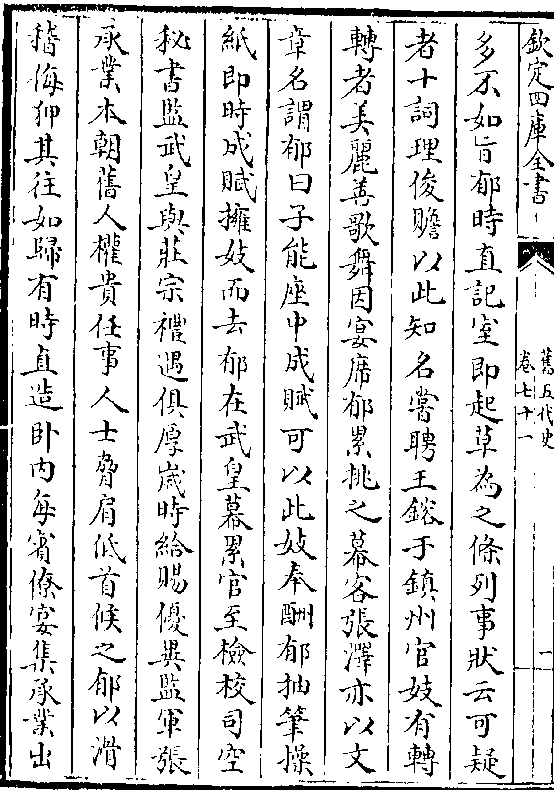 欽定四庫全書
舊五代史
卷七十一
一
多不如旨郁時直記室即起草為之條列事狀云可疑
者十詞理俊贍以此知名嘗聘王鎔于鎮州官妓有轉
轉者美麗善歌舞因宴席郁累挑之幕客張澤亦以文
章名謂郁曰子能座中成賦可以此妓奉酬郁抽筆操
紙即時成賦擁妓而去郁在武皇幕累官至檢校司空
秘書監武皇與莊宗禮遇俱厚歲時給賜優異監軍張
承業本朝舊人權貴任事人士脅肩低首候之郁以滑
稽侮狎其往如歸有時直造卧内每賓僚宴集承業出